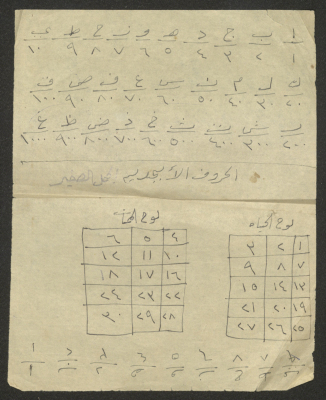 ا ب ج د ه و ز ح ط ى
١ ٢ ٣ ٤ ٥ ٦ ٧ ٨ ٩ ١٠
ك ل م ن س ع ف ص ق
٢٠ ٣٠ ٤٠ ٥٠ ٦٠ ٧٠ ٨٠ ٩٠ ١٠٠
ر ش ت ث خ ذ ض ظ غ
٢٠٠ ٤٠٠ ٥٠٠ ٦٠٠ ٧٠٠ ٨٠٠ ٩٠٠ ١٠٠٠
الحروف الأبجديه
لوح الحياه
١ ٢ ٣
٧ ٨ ٩
١٣ ١٤ ١٥
١٩ ٢٠ ٢١
٢٥ ٢٦ ٢٧
لوح
٤ ٥ ٦
١٠ ١١ ١٢
١٦ ١٧ ١٨
٢٢ ٢٣ ٢٤
٢٨ ٢٩ ٣٠